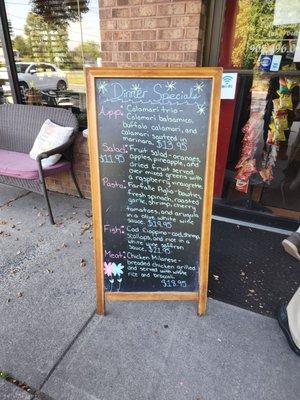 Dinner Specials
Appi: Calamari trio-
Calamari balsamica,
buffalo calamari, and
calamari seafood
marinara $13.95
Salad: Fruit salad - oranges,
$11.95 apples, pineapple, and
dried fruit served
over mixed greens with
a raspberry vinaigrette
Pasta: Farfalle Puglia - Bowtie,
fresh spinach, roasted
garlic, shrimp, cherry
tomatoes, and arugula
in a olive white wine
sauce $19.95
Fish: Cod Cioppino - cod, shrimp
scallops, and rice in a
white wine saffron
sauce. $21.95
Meat: Chicken Milanese -
breaded chicken grilled
and served with white
rice and broccoli
$18.95